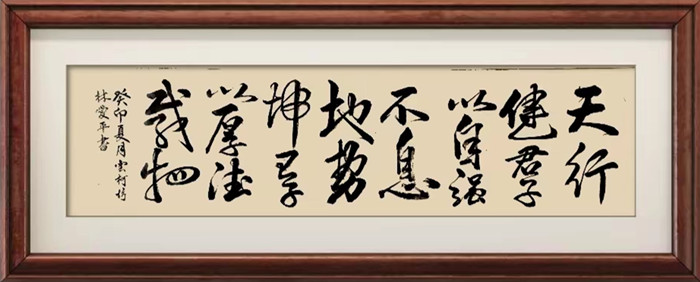 天行
健君子
以自强
不息
地势
坤君子
以厚德
載物
癸卯夏月雲柯
林愛平書